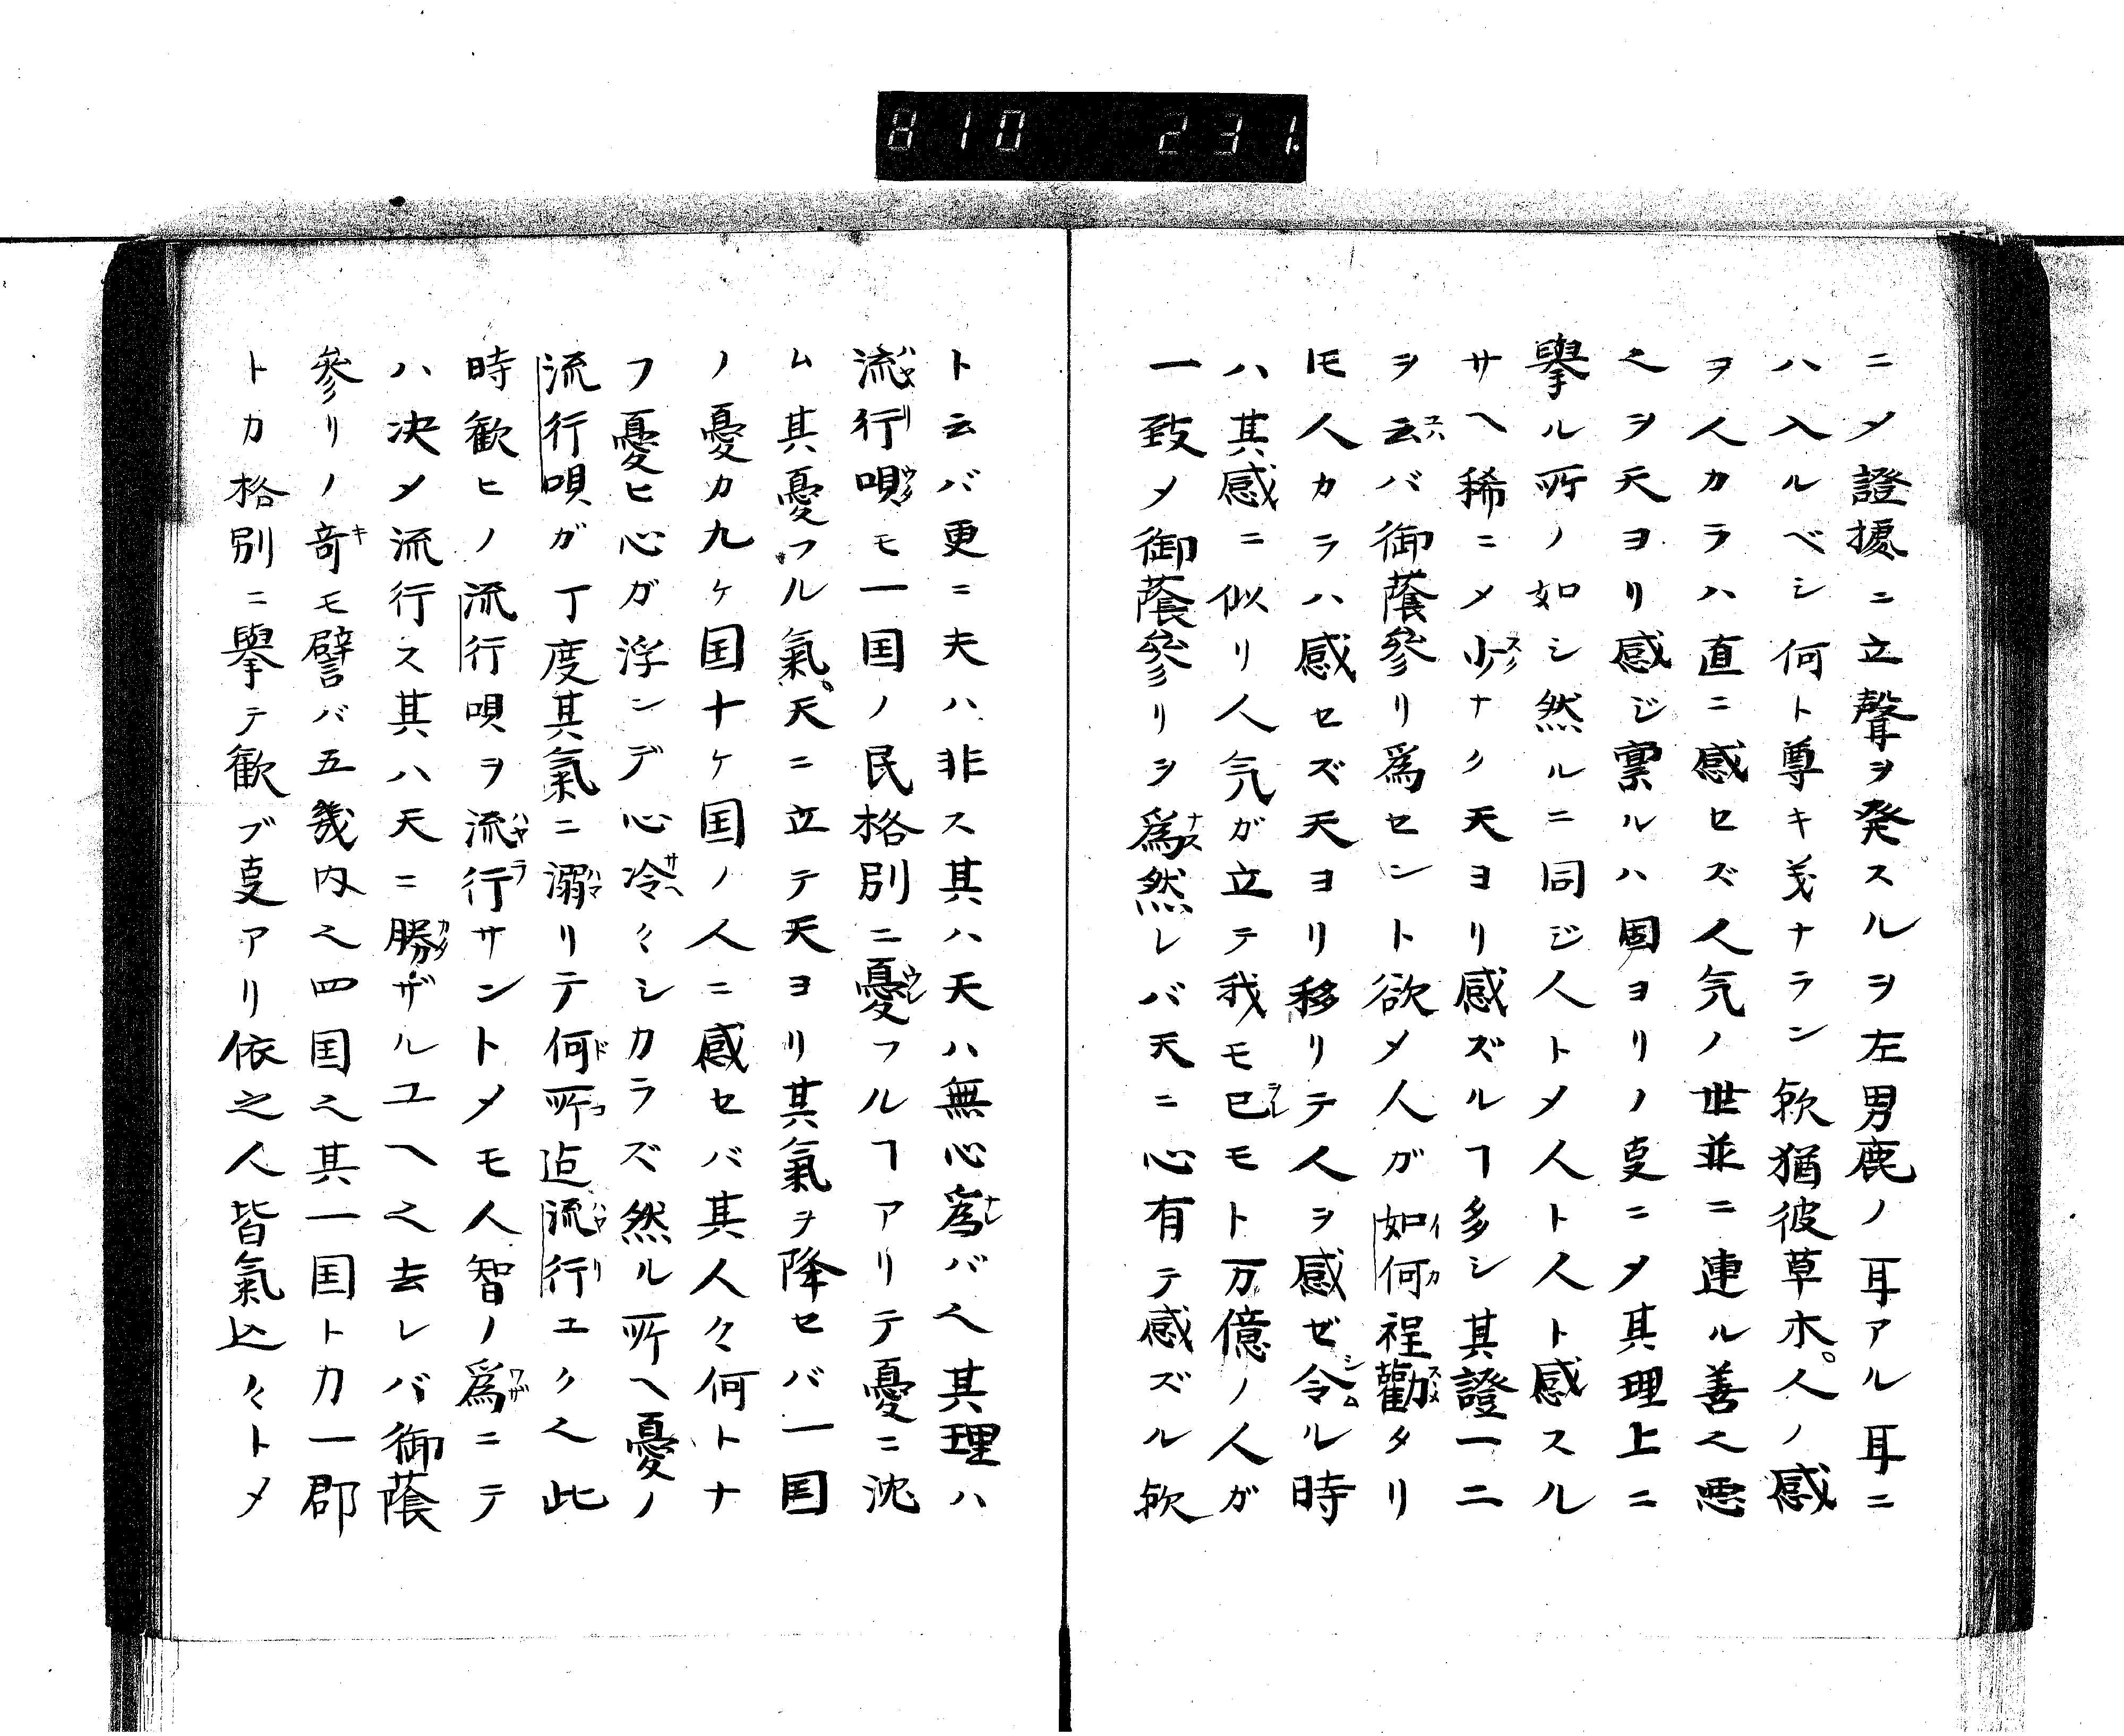 810 231.
ニ〆證據ニ立聲ヲ発スルヲ左男鹿ノ耳アル耳ニ
ハ入ルベシ何ト尊キ義ナラン欤猶彼草木。人ノ感
ヲ人カラハ直ニ感セズ人気ノ世並ニ連ル善之悪
之ヲ天ヨリ感ジ稟ルハ固ヨリノ叓ニ〆其理上ニ
擧ル所ノ如シ然ルニ同ジ人ト〆人ト人ト感スル
サヘ稀ニ〆少ナク天ヨリ感ズルヿ多シ其證一二
ヲ云バ御蔭參リ爲セント欲〆人ガ如何程勸タリ
𪜈人カラハ感セズ天ヨリ移リテ人ヲ感ゼ令ル時
ハ其感ニ似リ人気ガ立テ我モ已モト万億ノ人ガ
一致〆御蔭參リヲ爲然レバ天ニ心有テ感ズル欤
ト云バ更ニ夫ハ非ス其ハ天ハ無心爲バ之其理ハ
流行唄モ一国ノ民格別ニ憂フルヿアリテ憂ニ沈
ム其憂フル氣。天ニ立テ天ヨリ其氣ヲ降セバ一国
ノ憂カ九ヶ国十ヶ国ノ人ニ感セバ其人々何トナ
フ憂ヒ心ガ浮ンデ心冷々シカラズ然ル所ヘ憂ノ
流行唄ガ丁度其氣ニ溺リテ何所迠流行ユク之此
時歓ヒノ流行唄ヲ流行サントメモ人智ノ爲ニテ
ハ决〆流行ス其ハ天ニ勝ザルユヘ之去レバ御蔭
參リノ竒モ譬バ五畿内之四国之其一国トカ一郡
トカ格別ニ擧テ歓ブ叓アリ依之人皆氣込々ト〆